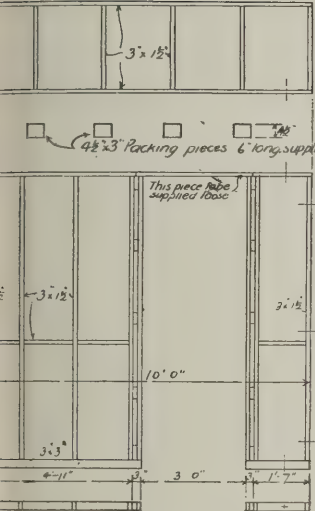 3" x 1½"
4½"x3" Packing pieces 6" long. suppl
This piece to be
supplied loose
3"x1½"
3"x1½"
10' 0"
3"x3"
4'-11" 3" 3' 0" 3" 1'-7"